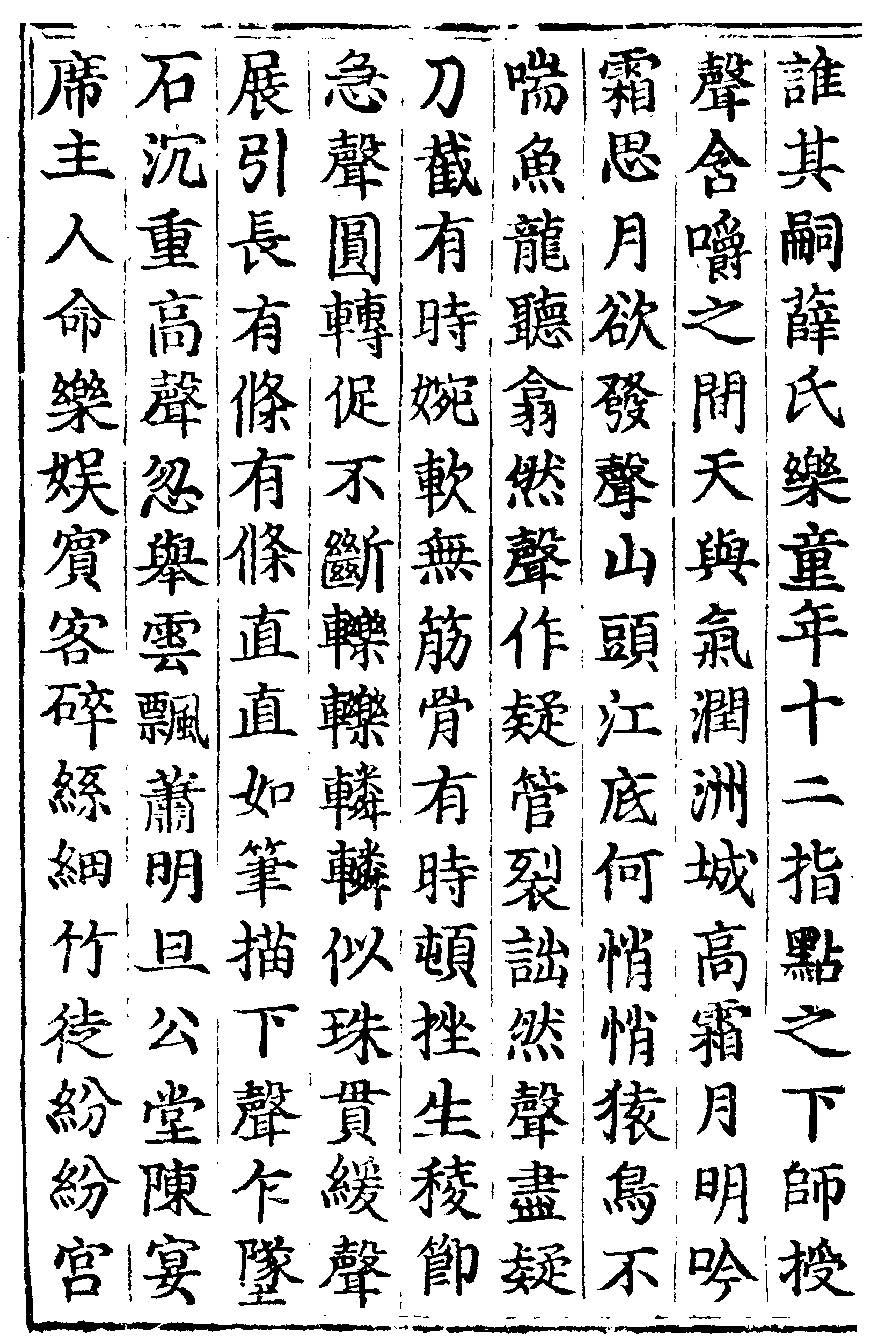 誰其嗣薛氏樂童年十二指點之下師授
聲含嚼之間天與氣潤洲城高霜月明吟
霜思月欲發聲山頭江底何悄悄猿鳥不
喘魚龍聽翕然聲作疑管裂詘然聲盡疑
刀截有時婉軟無筋骨有時頓挫生稜節
急聲圓轉促不斷轢轢轔轔似珠貫緩聲
展引長有條有條直直如筆描下聲乍墜
石沉重高聲忽舉雲飄蕭明旦公堂陳宴
席主人命樂娛賓客碎絲細竹徒紛紛宮